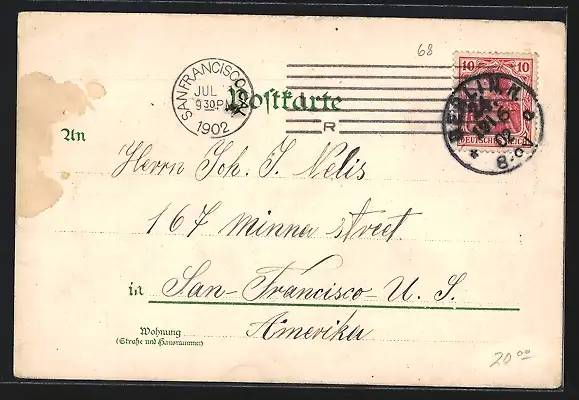 68
SAN FRANCISCO, CAL.
JUL
930P
1902
R
Postkarte
10 10
DEUTSCHES REICH
BERLIN, N.
02
8-9
An
Herrn Joh. J. Nelis
167 Minna street
in San-Francisco-U. S.
Amerika
Wohnung
(Straße und Hausnummer)
20⁰⁰